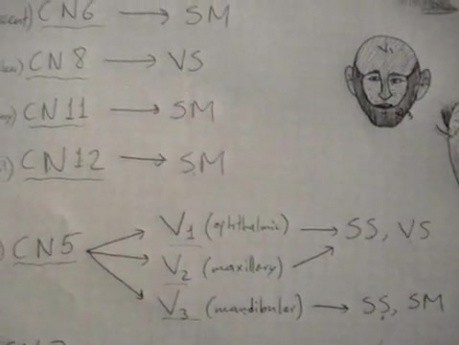 CN6 → SM
CN8 → VS
CN11 → SM
CN12 → SM
CN5
V1 (ophthalmic) → SS, VS
V2 (maxillary)
V3 (mandibular) → SS, SM
V1